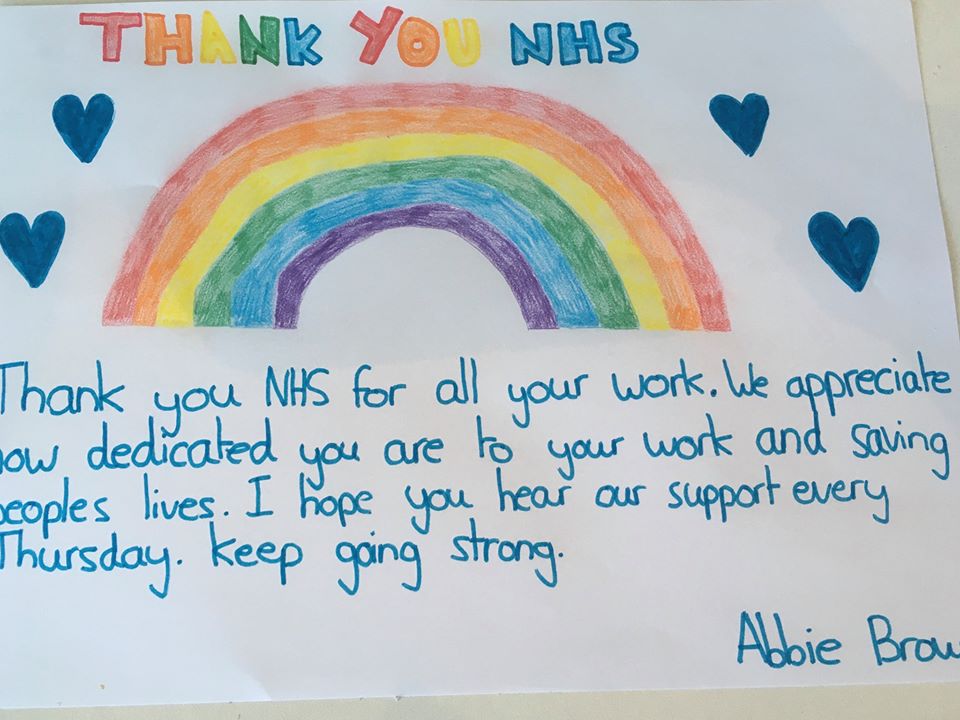 THANK YOU NHS
Thank you NHS for all your work. We appreciate
how dedicated you are to your work and saving
peoples lives. I hope you hear our support every
Thursday. keep going strong.
Abbie Brow